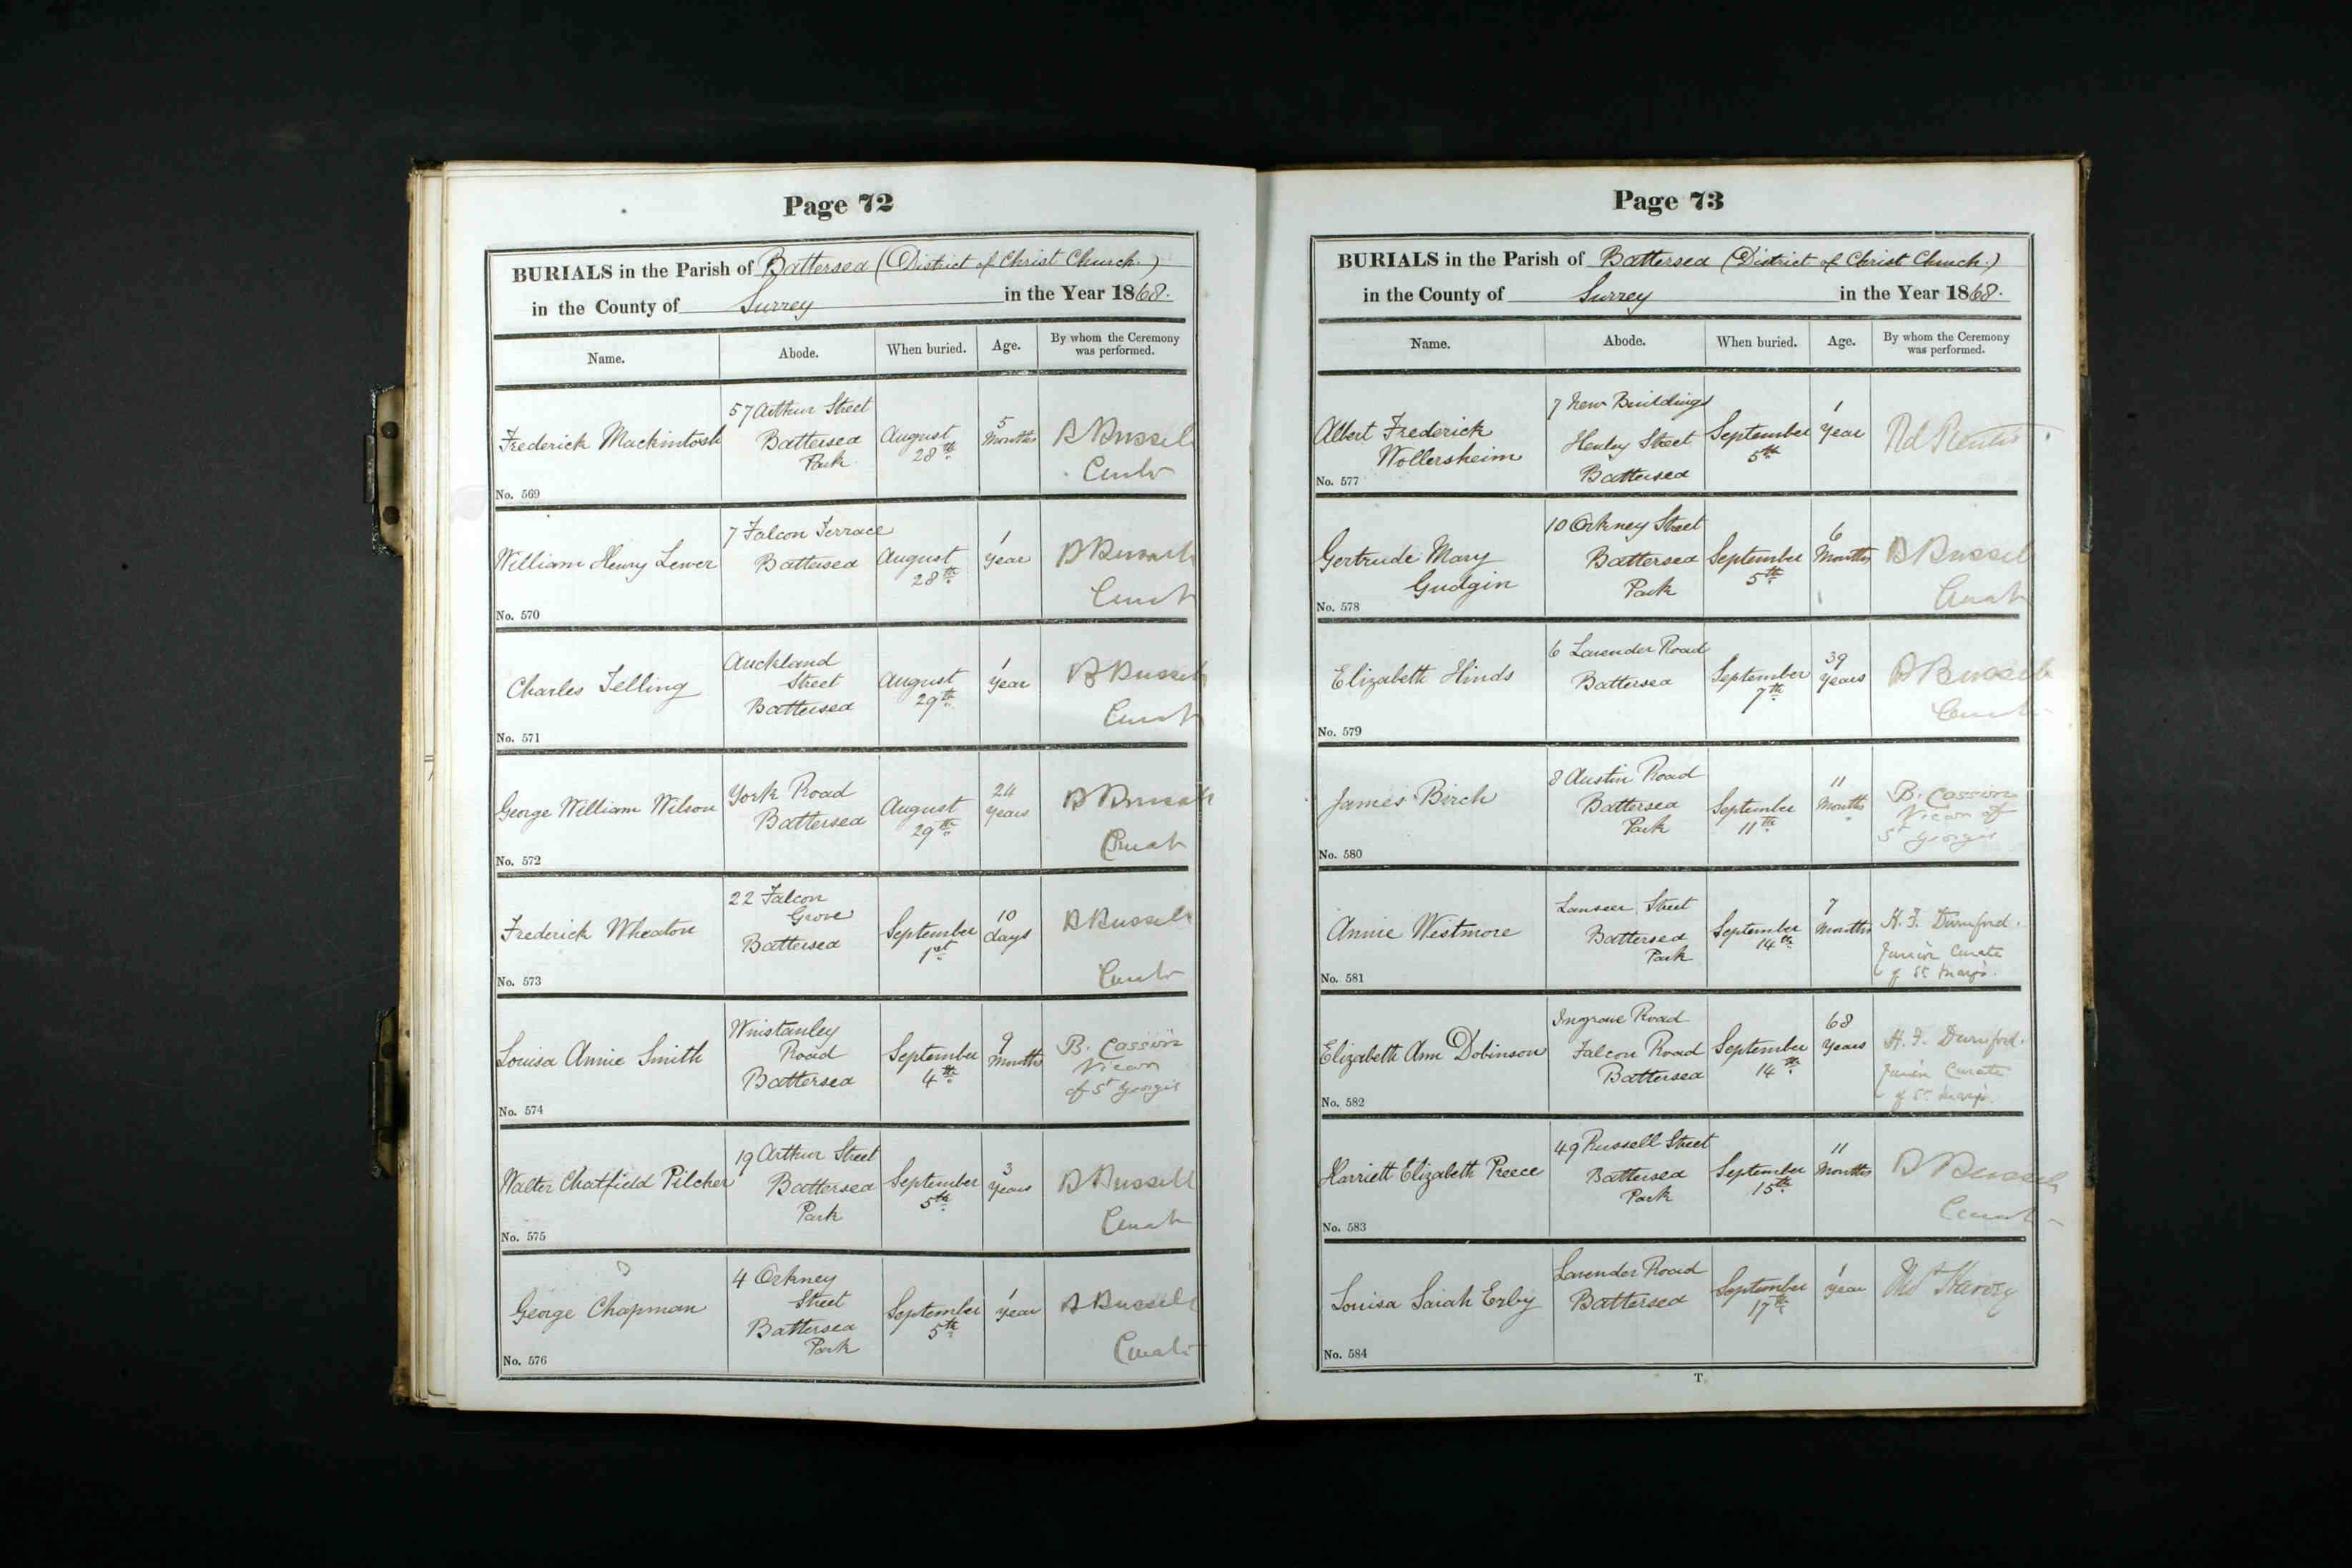 Page 72
BURIALS in the Parish of Battersea (District of Christ Church.)
in the County of Surrey in the Year 1868.
Name. Abode. When buried. Age. By whom the Ceremony was performed.
Frederick Mackintosh
57 Arthur Street
Battersea
Park
August
28th
5
Months
B Russell
Curate
No. 569
William Henry Lewer
7 Falcon Terrace
Battersea
August
28th
1
Year
B Russell
Curate
No. 570
Charles Telling
Auckland
Street
Battersea
August
29th
1
Year
B Russell
Curate
No. 571
George William Wilson
York Road
Battersea
August
29th
24
Years
B Russell
Curate
No. 572
Frederick Wheaton
22 Falcon
Grove
Battersea
September
1st
10
days
B Russell
Curate
No. 573
Louisa Annie Smith
Winstanley
Road
Battersea
September
4th
9
Months
B. Cassin
Vicar
of St Georges
No. 574
Walter Chatfield Pilcher
19 Arthur Street
Battersea
Park
September
5th
3
Years
B Russell
Curate
No. 575
George Chapman
4 Orkney
Street
Battersea
Park
September
5th
1
Year
B Russell
Curate
No. 576
Page 73
BURIALS in the Parish of Battersea (District of Christ Church.)
in the County of Surrey in the Year 1868.
Name. Abode. When buried. Age. By whom the Ceremony was performed.
Albert Frederick
Wollersheim
7 New Buildings
Henley Street
Battersea
September
5th
1
Year
No. 577
Gertrude Mary
Gudgin
10 Orkney Street
Battersea
Park
September
5th
6
Months
B Russell
Curate
No. 578
Elizabeth Hinds
6 Lavender Road
Battersea
September
7th
39
Years
B Russell
Curate
No. 579
James Birch
8 Austin Road
Battersea
Park
September
11th
11
Months
B. Cassin
Vicar of
St Georges
No. 580
Annie Westmore
Lanseer Street
Battersea
Park
September
14th
7
Months
H. F. Durnford.
Junior Curate
of St Mary's.
No. 581
Elizabeth Ann Dobinson
Ingrave Road
Falcon Road
Battersea
September
14th
68
Years
H. F. Durnford.
Junior Curate
of St Mary's.
No. 582
Harriett Elizabeth Preece
49 Russell Street
Battersea
Park
September
15th
11
Months
B Russell
Curate
No. 583
Louisa Sarah Erby
Lavender Road
Battersea
September
17th
1
Year
No. 584
T